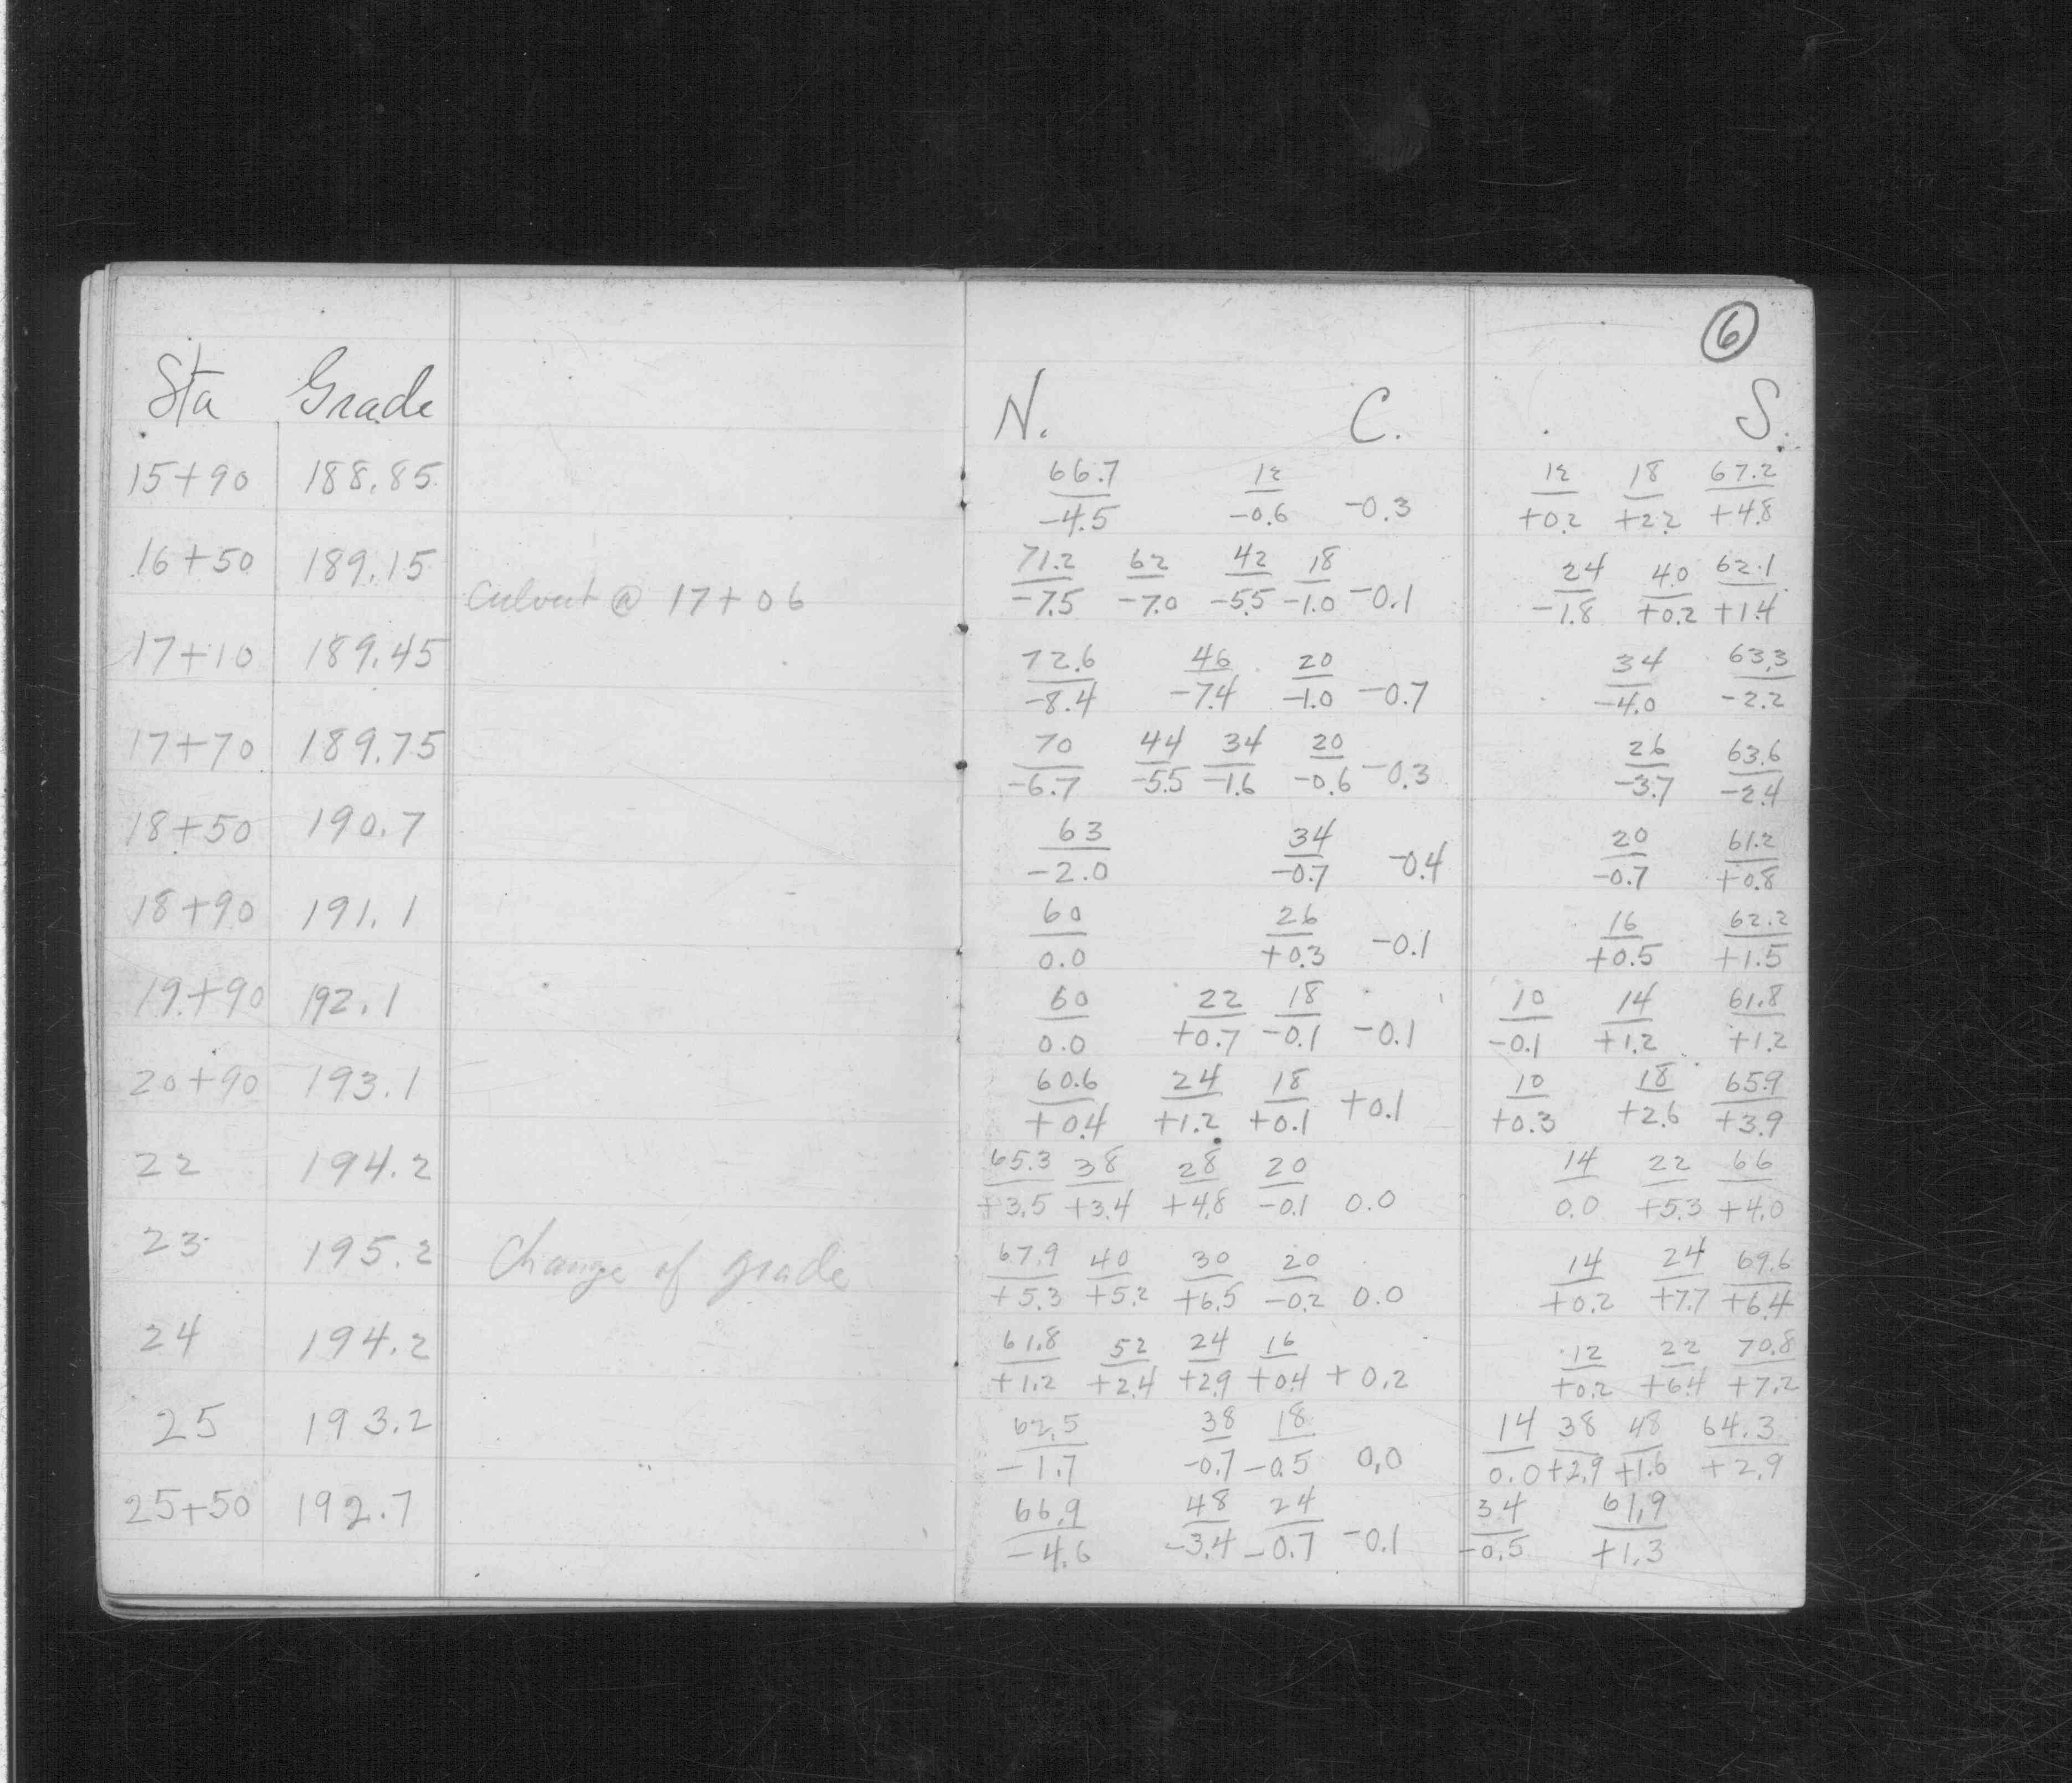 6
Sta Grade N. C. S.
15+90 188.85 66.7/-4.5 12/-0.6 -0.3 12/+0.2 18/+2.2 67.2/+4.8
16+50 189.15 71.2/-7.5 62/-7.0 42/-5.5 18/-1.0 -0.1 24/-1.8 40/+0.2 62.1/+1.4
Culvert @ 17+06
17+10 189.45 72.6/-8.4 46/-7.4 20/-1.0 -0.7 34/-4.0 63.3/-2.2
17+70 189.75 70/-6.7 44/-5.5 34/-1.6 20/-0.6 -0.3 26/-3.7 63.6/-2.4
18+50 190.7 63/-2.0 34/-0.7 -0.4 20/-0.7 61.2/+0.8
18+90 191.1 60/0.0 26/+0.3 -0.1 16/+0.5 62.2/+1.5
19+90 192.1 60/0.0 22/+0.7 18/-0.1 -0.1 10/-0.1 14/+1.2 61.8/+1.2
20+90 193.1 60.6/+0.4 24/+1.2 18/+0.1 +0.1 10/+0.3 18/+2.6 65.9/+3.9
22 194.2 65.3/+3.5 38/+3.4 28/+4.8 20/-0.1 0.0 14/0.0 22/+5.3 66/+4.0
23 195.2 Change of grade 67.9/+5.3 40/+5.2 30/+6.5 20/-0.2 0.0 14/+0.2 24/+7.7 69.6/+6.4
24 194.2 61.8/+1.2 52/+2.4 24/+2.9 16/+0.4 +0.2 12/+0.2 22/+6.4 70.8/+7.2
25 193.2 62.5/-1.7 38/-0.7 18/-0.5 0.0 14/0.0 38/+2.9 48/+1.6 64.3/+2.9
25+50 192.7 66.9/-4.6 48/-3.4 24/-0.7 -0.1 34/-0.5 61.9/+1.3